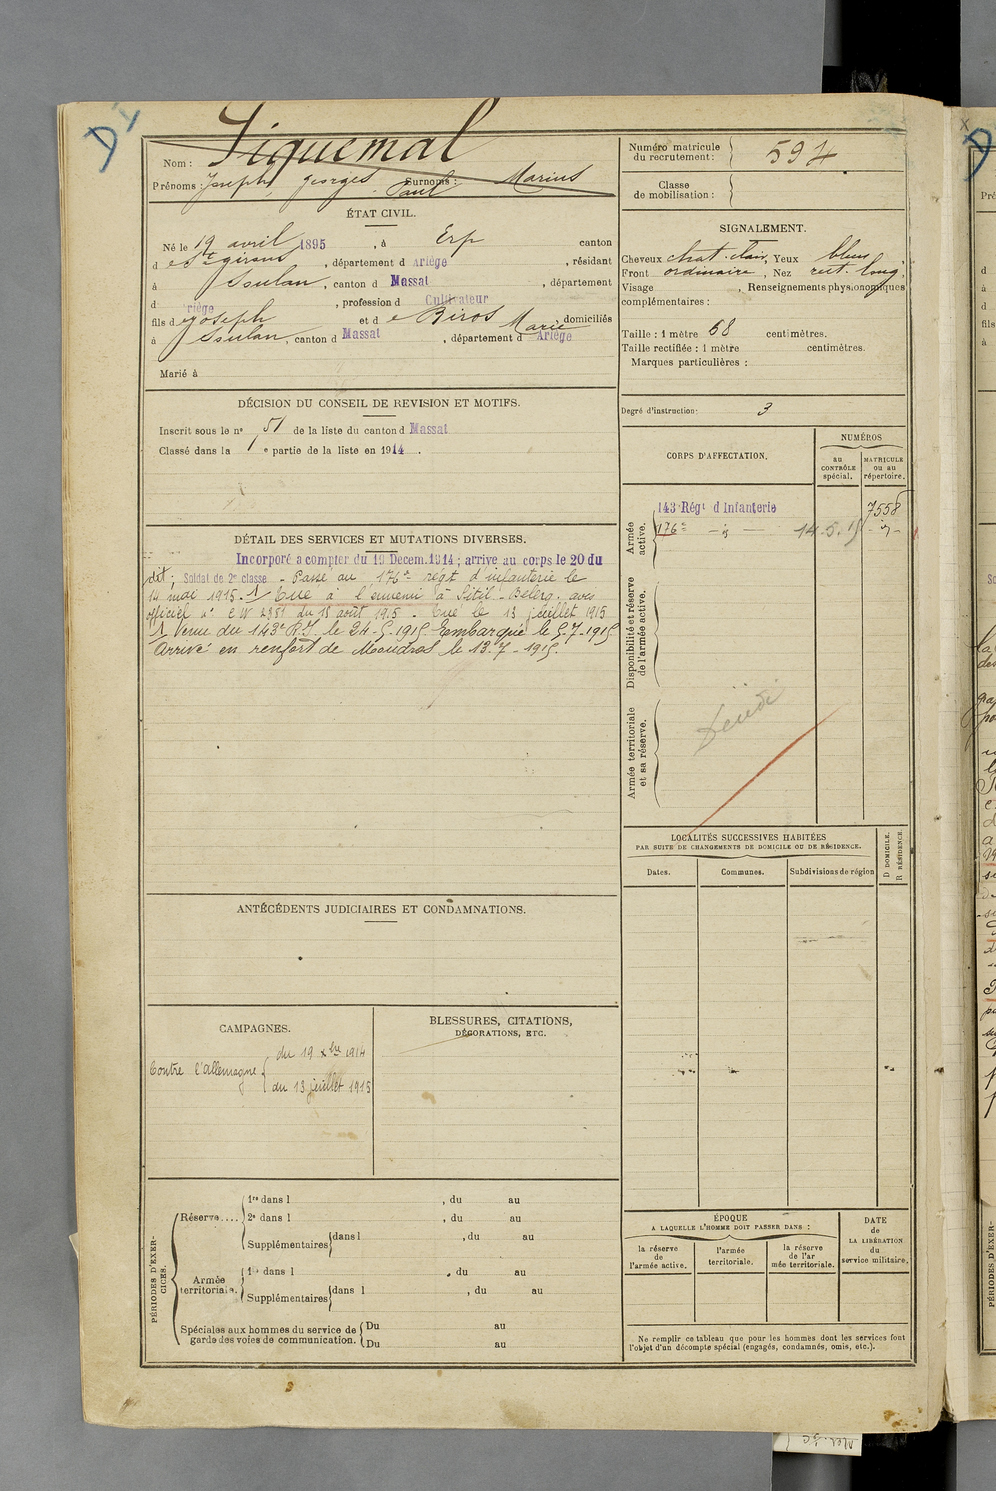 D
Nom : Piquemal
Prénoms : Joseph, Georges, Paul Surnoms : Marius
Numéro matricule du recrutement : 594
Classe de mobilisation :
ÉTAT CIVIL.
Né le 19 avril 1895, à Erp canton
d e St Girons, département d Ariège, résidant
à Soulan, canton d Massat, département
d riège, profession d Cultivateur
fils d e Joseph et d e Biros Marie domiciliés
à Soulan, canton d Massat, département d Ariège
Marié à
SIGNALEMENT.
Cheveux chat. clair, Yeux bleus,
Front ordinaire, Nez rect. long,
Visage , Renseignements physionomiques
complémentaires :
Taille : 1 mètre 68 centimètres.
Taille rectifiée : 1 mètre centimètres.
Marques particulières :
Degré d'instruction : 3
DÉCISION DU CONSEIL DE REVISION ET MOTIFS.
Inscrit sous le no 51 de la liste du canton d Massat
Classé dans la 1 e partie de la liste en 1914.
DÉTAIL DES SERVICES ET MUTATIONS DIVERSES.
Incorporé a compter du 19 Décem. 1914 ; arrivé au corps le 20 du
dit ; Soldat de 2e classe - Passé au 176e régt d'infanterie le
14 mai 1915. 1/ Tué à l'ennemi à Sitil-Belerg. avis
officiel no CW 2381 du 18 août 1915. Tué le 13 juillet 1915
1/ Venu du 143e R.I. le 24-5-1915 Embarqué le 5.7-1915
Arrivé en renfort de Moudros le 13.7-1915.
CORPS D'AFFECTATION.
NUMÉROS
au CONTRÔLE spécial.
MATRICULE ou au répertoire.
Armée active.
143 Régt d Infanterie 7558
176e - id - 14.5.15 - id -
Disponibilité et réserve de l'armée active.
Armée territoriale et sa réserve.
LOCALITÉS SUCCESSIVES HABITÉES
PAR SUITE DE CHANGEMENTS DE DOMICILE OU DE RÉSIDENCE.
Dates.
Communes.
Subdivisions de région
D DOMICILE.
R RÉSIDENCE.
ANTÉCÉDENTS JUDICIAIRES ET CONDAMNATIONS.
CAMPAGNES.
Contre l'Allemagne { du 19 Xbre 1914
du 13 juillet 1915
BLESSURES, CITATIONS,
DÉCORATIONS, ETC.
PÉRIODES D'EXERCICES.
Réserve.... 1re dans l , du au
2e dans l , du au
Supplémentaires { dans l , du au
Armée territoriale. 1re dans l , du au
Supplémentaires { dans l , du au
Spéciales aux hommes du service de { Du au
garde des voies de communication. { Du au
ÉPOQUE
A LAQUELLE L'HOMME DOIT PASSER DANS :
la réserve de l'armée active.
l'armée territoriale.
la réserve de l'ar mée territoriale.
DATE de LA LIBÉRATION du service militaire.
Ne remplir ce tableau que pour les hommes dont les services font
l'objet d'un décompte spécial (engagés, condamnés, omis, etc.).